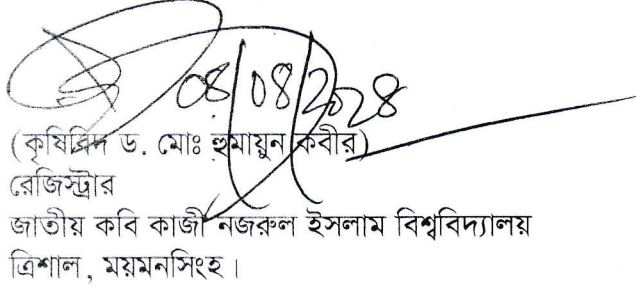 ০৪/০৪/২০২৪
(কৃষিবিদ ড. মোঃ হুমায়ুন কবীর)
রেজিস্ট্রার
জাতীয় কবি কাজী নজরুল ইসলাম বিশ্ববিদ্যালয়
ত্রিশাল, ময়মনসিংহ।